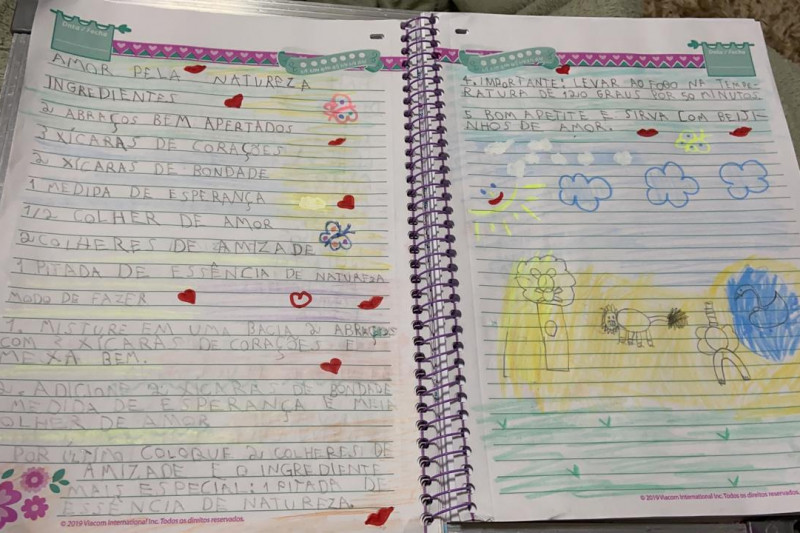 Data / Fecha
AMOR PELA NATUREZA
INGREDIENTES
2 ABRAÇOS BEM APERTADOS
3 XÍCARAS DE CORAÇÕES
2 XÍCARAS DE BONDADE
1 MEDIDA DE ESPERANÇA
1/2 COLHER DE AMOR
2 COLHERES DE AMIZADE
1 PITADA DE ESSÊNCIA DE NATUREZA
MODO DE FAZER
1. MISTURE EM UMA BACIA 2 ABRAÇOS
COM 3 XÍCARAS DE CORAÇÕES E
MEXA BEM.
2. ADICIONE 2 XÍCARAS DE BONDADE
MEDIDA DE ESPERANÇA E MEIA
COLHER DE AMOR
POR ÚLTIMO COLOQUE 2 COLHERES DE
AMIZADE E O INGREDIENTE
MAIS ESPECIAL: 1 PITADA DE
ESSÊNCIA DE NATUREZA.
© 2019 Viacom International Inc. Todos os direitos reservados.
Data / Fecha
4. IMPORTANTE: LEVAR AO FOGO NA TEMPE-
RATURA DE 120 GRAUS POR 50 MINUTOS
5 BOM APETITE E SIRVA COM BEIJI-
NHOS DE AMOR.
© 2019 Viacom International Inc. Todos os direitos reservados.